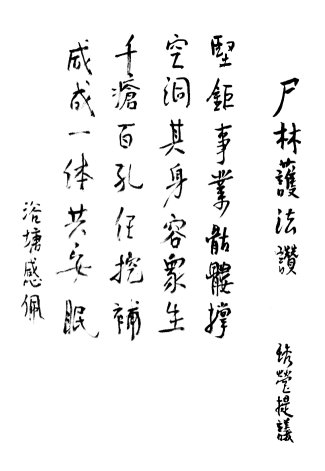 尸林護法讚
瑩提議
堅鉅事業骷髏撐
空洞其身容眾生
千瘡百孔任挖補
咸成一体共安眠
浴塘感佩